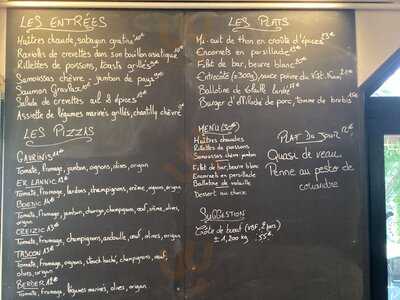 LES ENTRÉES
Huîtres chaude, sabayon gratiné
Raviolis de crevettes dans son bouillon asiatique
Rillettes de poissons, toasts grillés
Samoussas chèvre - jambon de pays
Saumon Gravlax
Salade de crevettes aux 2 épices
Assiette de légumes marinés grillés, chantilly chèvre
LES PIZZAS
GAVRINIS
Tomate, fromage, jambon, oignons, olives, origan
ER LANNIC
Tomate, fromage, lardons, champignons, crème, oignons, origan
BOEDIC
Tomate, fromage, jambon, champignons, œuf, crème, olives, origan
CREIZIC
Tomate, fromage, champignons, andouille, œuf, olives, origan
TASCON
Tomate, fromage, oignons, steack haché, champignons, œuf, olives, origan
BERDER
Tomate, fromage, légumes marinés, olives, origan
LES PLATS
Mi-cuit de thon en croûte d'épices
Encornets en persillade
Filet de bar, beurre blanc
Entrecôte (±300g), sauce poivre du Viêt-Nam
Ballotine de volaille
Burger d'effiloché de porc, tomme de brebis
MENU (30€)
Huîtres chaudes
Rillettes de poissons
Samoussas chèvre jambon
Filet de bar, beurre blanc
Encornets en persillade
Ballotine de volaille
Dessert au choix
PLAT DU JOUR
Quasi de veau,
Penne au pesto de
coriandre
SUGGESTION
Côte de bœuf (VBF, 2 pers)
± 1,200 kg 55€